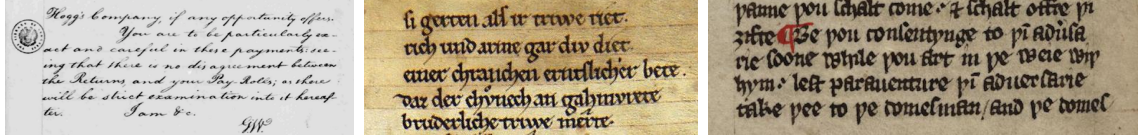 Hogg's Company, if any opportunity offers.
You are to be particularly ex-
act and careful in these payments: see-
ing that there is no disagreement between
the Returns and your Pay-Rolls; as there
will be strict examination into it hereaf-
ter. I am &c.
GW.
si gerten als ir triwe riet.
rich und arme gar div diet.
einer chranchen ernstlicher bete.
daz der chvͦnech an gahmvrete
bruderliche triwe merte.
þanne þou schalt come· & schalt offre þi
ȝifte ¶ Be þou consentynge to þi aduersa
rie soone while þou art in þe weie wiþ
hym· lest parauenture þi aduersarie
take þee to þe domesman/and þe domes